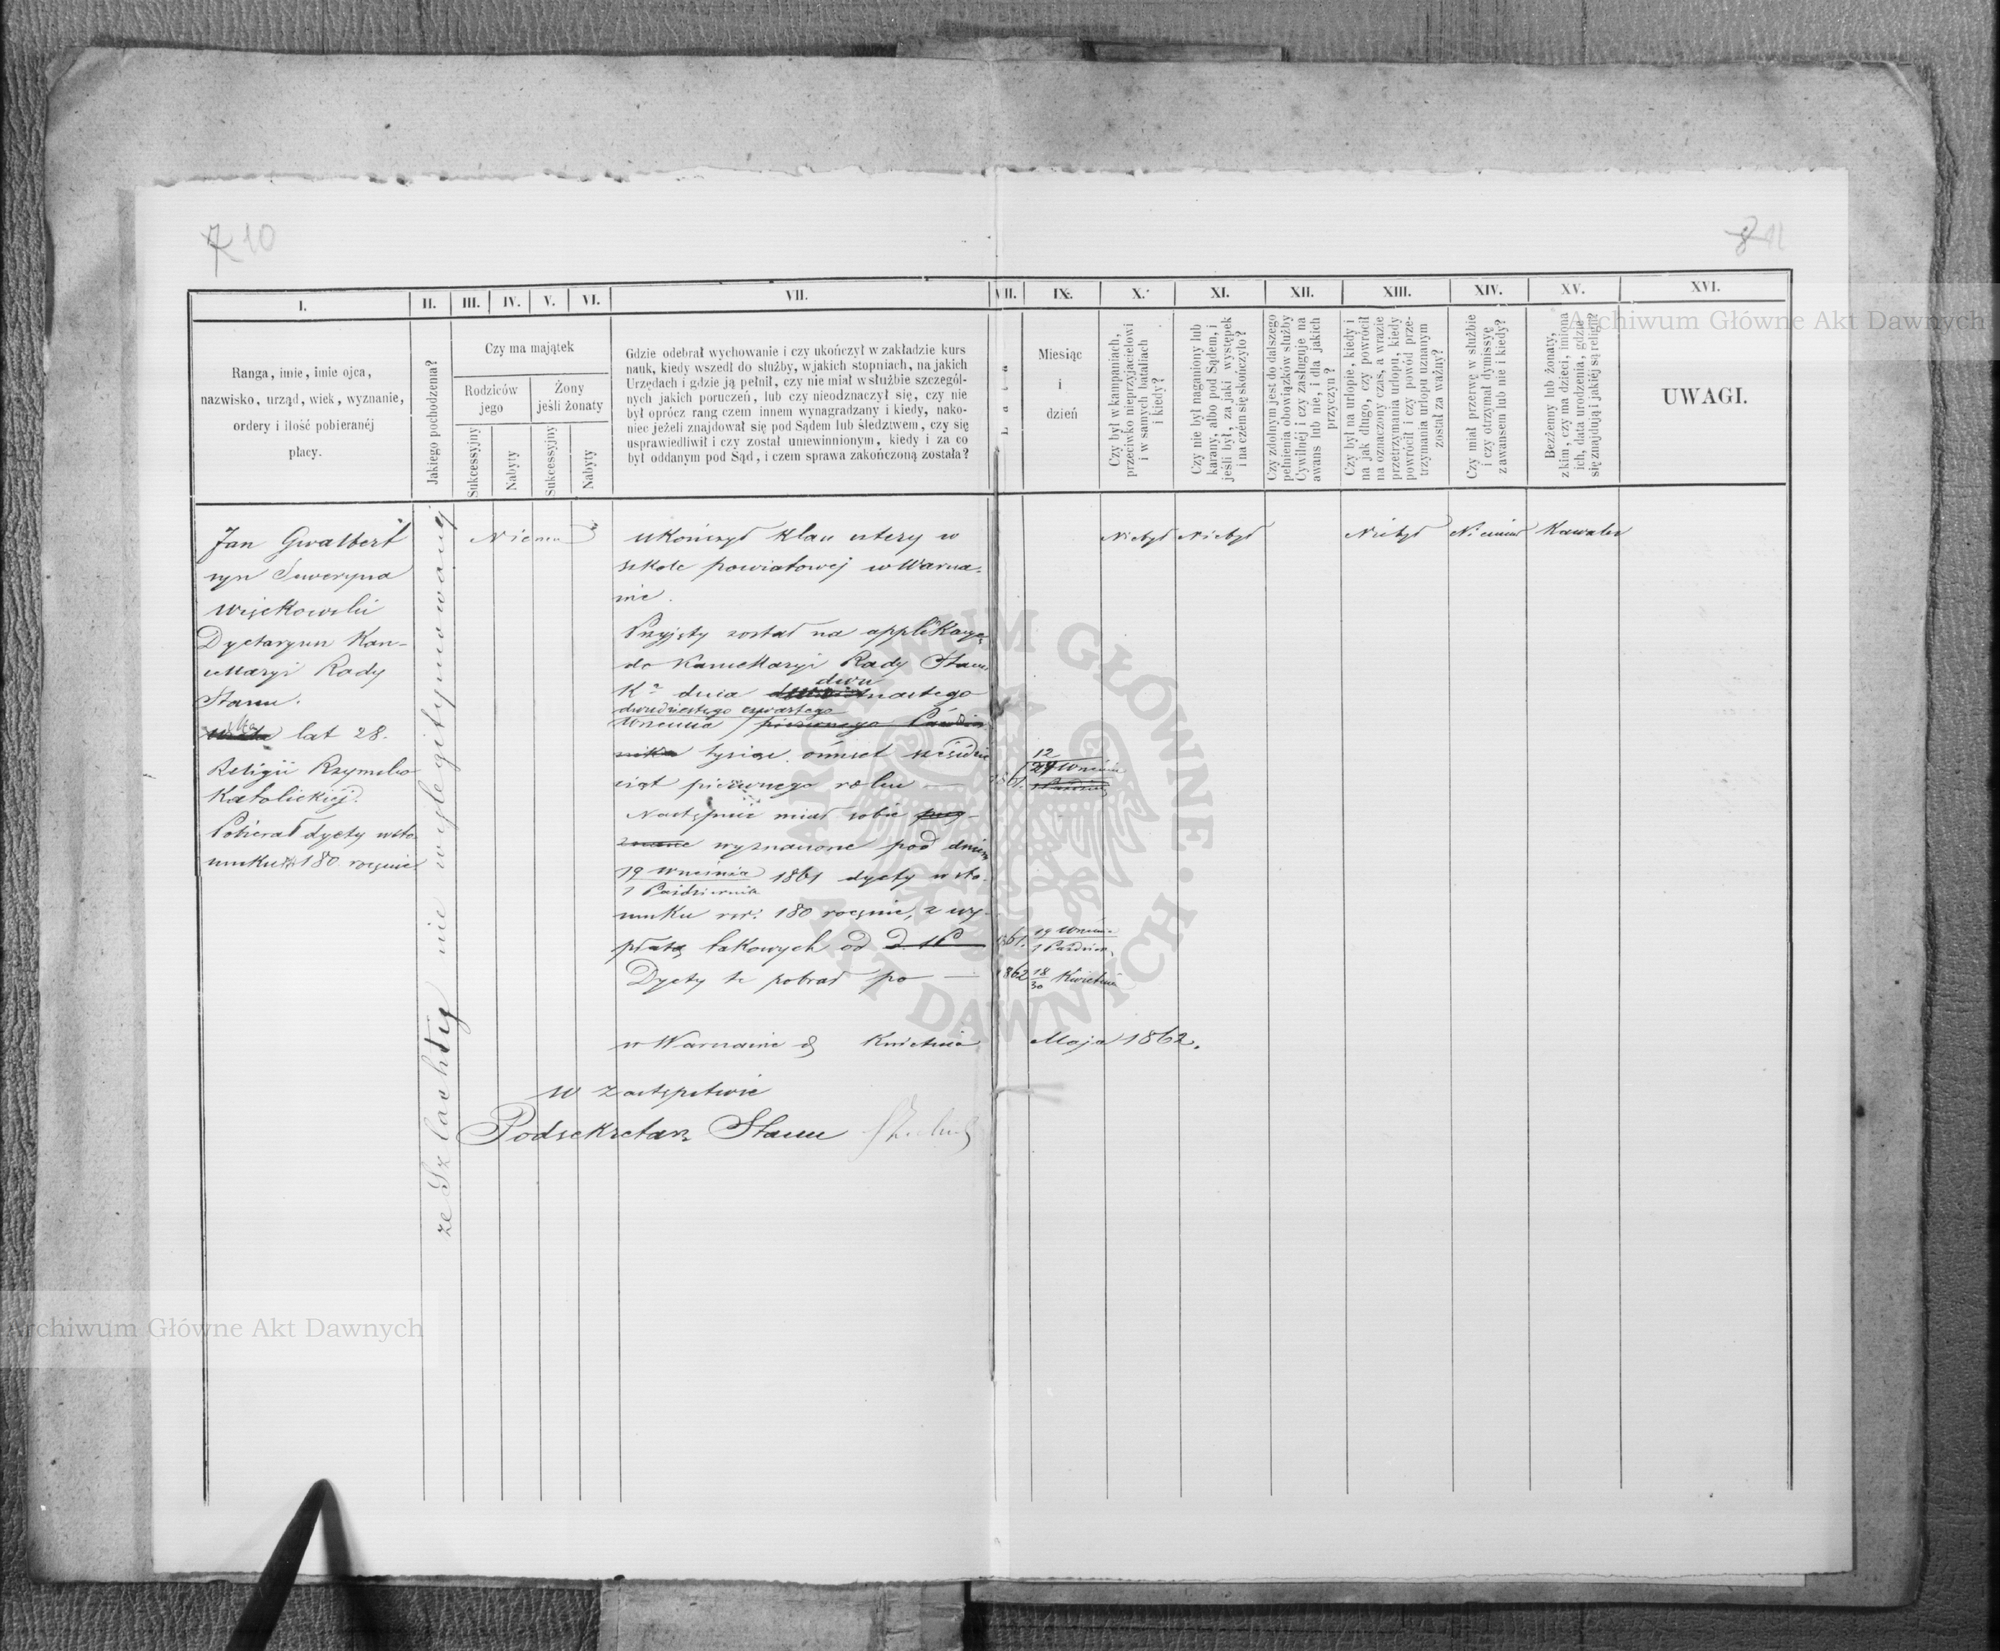 7 10
8 11
I.
II.
III.
IV.
V.
VI.
VII.
VIII.
IX.
X.
XI.
XII.
XIII.
XIV.
XV.
XVI.
Ranga, imie, imie ojca,
nazwisko, urząd, wiek, wyznanie,
ordery i ilość pobieranéj
płacy.
Jakiego pochodzenia?
Czy ma majątek
Rodziców
jego
Żony
jeśli żonaty
Sukcessyjny
Nabyty
Sukcessyjny
Nabyty
Gdzie odebrał wychowanie i czy ukończył w zakładzie kurs
nauk, kiedy wszedł do służby, w jakich stopniach, na jakich
Urzędach i gdzie ją pełnił, czy nie miał w służbie szczegól-
nych jakich poruczeń, lub czy nieodznaczył się, czy nie
był oprócz rang czem innem wynagradzany i kiedy, nako-
niec jeżeli znajdował się pod Sądem lub śledztwem, czy się
usprawiedliwił i czy został uniewinnionym, kiedy i za co
był oddanym pod Sąd, i czem sprawa zakończoną została?
Lata
Miesiąc
i
dzień
Czy był w kampaniach,
przeciwko nieprzyjacielowi
i w samych bataliach
i kiedy?
Czy nie był naganiony lub
karany, albo pod Sądem, i
jeśli był, za jaki występek
i na czém się skończyło?
Czy zdolnym jest do dalszego
pełnienia obowiązków służby
Cywilnéj i czy zasługuje na
awans lub nie, i dla jakich
przyczyn?
Czy był na urlopie, kiedy i
na jak długo, czy powrócił
na oznaczony czas, a w razie
przetrzymania urlopu, kiedy
powrócił i czy powód prze-
trzymania urlopu uznanym
został za ważny?
Czy miał przerwę w służbie
i czy otrzymał dymissyę
z awansem lub nie i kiedy?
Bezżenny lub żonaty,
z kim, czy ma dzieci, imiona
ich, data urodzenia, gdzie
się znajdują i jakiéj są religii?
UWAGI.
Jan Gwalbert
syn Seweryna
Więckowski
Dyetaryusz Kan-
cellaryi Rady
Stanu.
lat 28.
Religii Rzymsko
Katolickiéj.
Pobierał dyety w sto-
sunku rs 180 rocznie.
ze Szlachty nie wylegitymowanej
Niema
ukończył klass cztery w
szkole powiatowej w Warsza-
wie.
Przyjęty został na applikacyę
do Kancellaryi Rady Stanu
Kr. dnia dwunastego
dwu
dwudziestego czwartego
Września pierwszego Paździer-
nika tysiąc ośmset sześćdzie-
siąt pierwszego roku —
1861.
12
24 Września
Następnie miał sobie przy-
znane wyznaczone pod dniem
19 Września
1 Października 1861 dyety w sto-
sunku rsr. 180 rocznie, z wy-
płatą takowych od d. 1 P
1861.
19 Wrześ.
1 Paździer.
Dyety te pobrał po —
1862
18
30 Kwietnia
w Warszawie d Kwietnia
Maja 1862.
w zastępstwie
Podsekretarz Stanu
Niebył
Niebył
Niebył
Niemiał
Kawaler
Archiwum Główne Akt Dawnych
Archiwum Główne Akt Dawnych
ARCHIWUM GŁÓWNE · AKT DAWNYCH ·